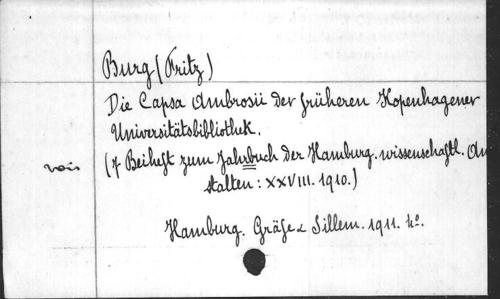 Burg (Fritz)
Die Capsa Ambrosii der früheren Kopenhagener
Universitätsbibliothek.
vois (7 Beiheft zum Jahrbuch der Hamburg. wissenschaftl. An
stalten: XXVIII. 1910.)
Hamburg. Gräfe & Sillem. 1911. 4o.